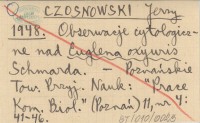 CZOSNOWSKI Jerzy
1948. Obserwacje cytologicz-
ne nad Euglena oxyuris
Schmarda. — Poznańskie
Tow. Przyj. Nauk: "Prace
Kom. Biol." (Poznań) 11, nr 4:
41-46.
BT/010/0025